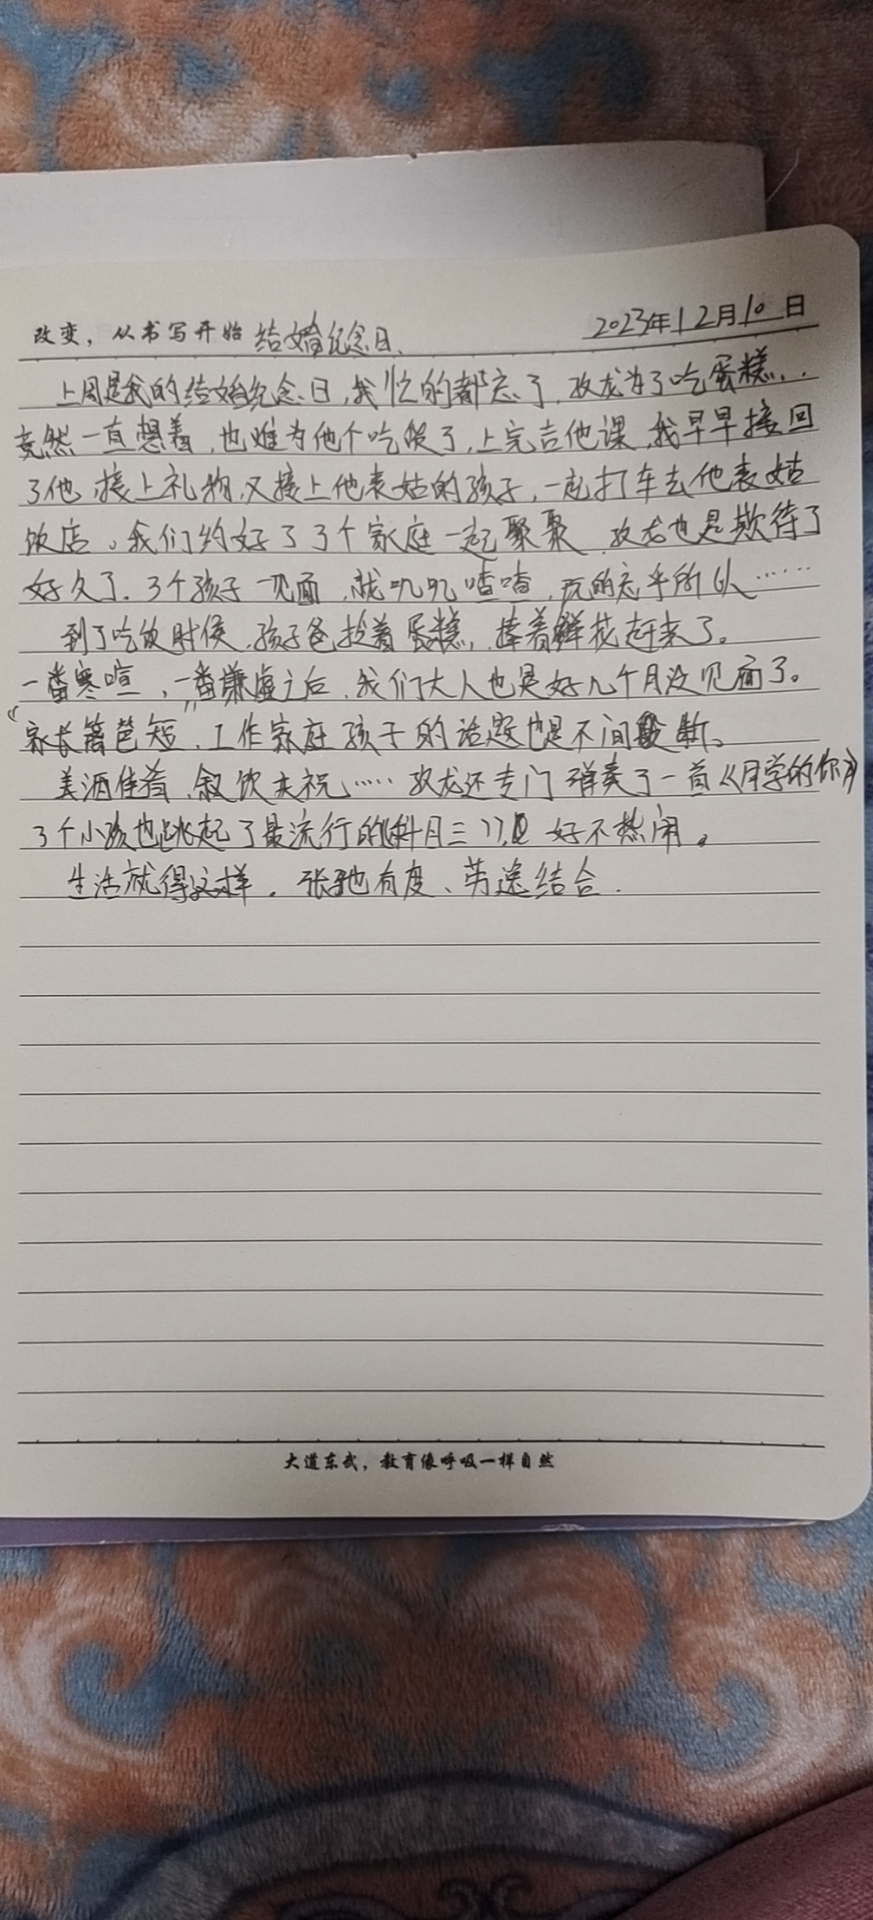 改变，从书写开始 结婚纪念日、 2023年12月10日
上周是我的结婚纪念日，我忙的都忘了，孜龙为了吃蛋糕...
竟然一直想着，也难为他个吃货了，上完吉他课，我早早接回
了他，接上礼物，又接上他表姑的孩子，一起打车去他表姑
饭店。我们约好了3个家庭一起聚聚，孜龙也是欺待了
好久了.3个孩子一见面，就叽叽喳喳，玩的忘乎所以……
到了吃饭时侯，孩子爸拎着蛋糕，捧着鲜花赶来了。
一番寒喧，一番谦虚之后，我们大人也是好几个月没见面了。
“家长篱芭短”，工作家庭孩子的话题也是不间断。
美酒佳肴，叙饮庆祝……孜龙还专门弹奏了一首《同学的你》
3个小孩也跳起了最流行的科目三 好不热闹。
生活就得这样。张弛有度、劳逸结合.
大道东武，教育像呼吸一样自然